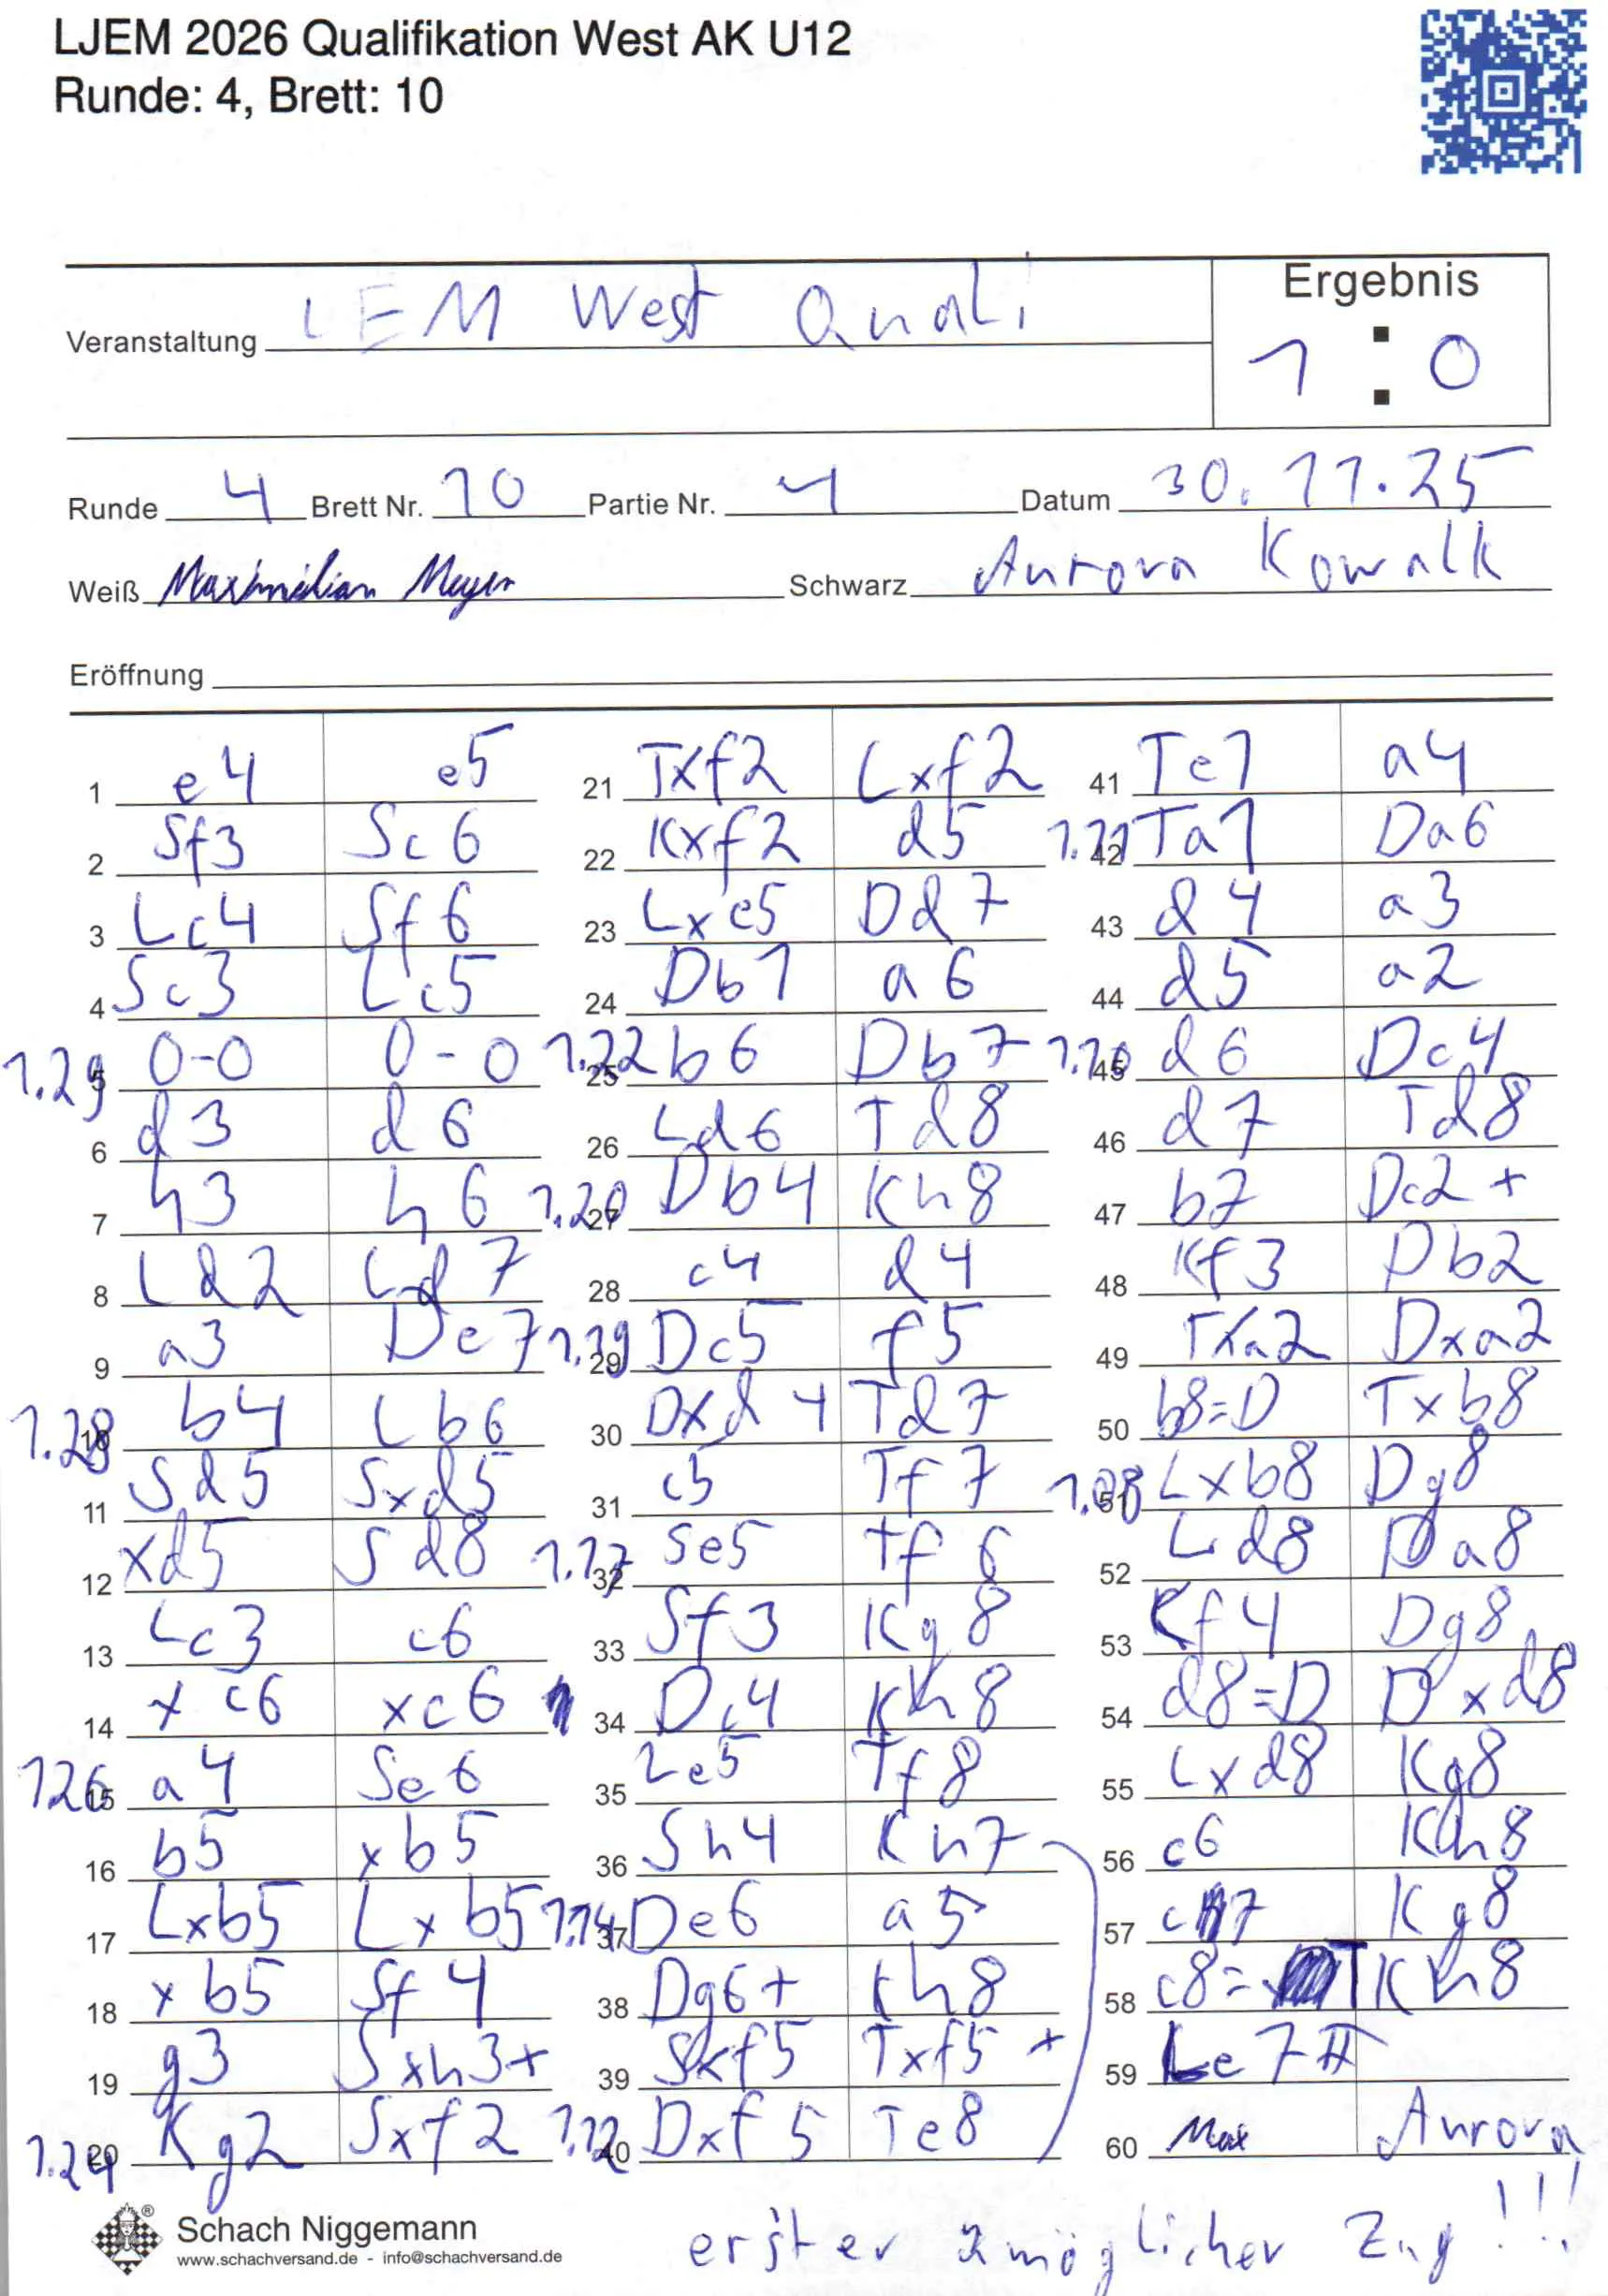 LJEM 2026 Qualifikation West AK U12
Runde: 4, Brett: 10
Ergebnis
Veranstaltung LEM West Quali
1 : 0
Runde 4 Brett Nr. 10 Partie Nr. 4 Datum 30.11.25
Weiß Maximilian Meyer Schwarz Aurora Kowalk
Eröffnung
1 e4 e5 21 Txf2 Lxf2 41 Te1 a4
2 Sf3 Sc6 22 Kxf2 d5 1.21 42 Ta1 Da6
3 Lc4 Sf6 23 Lxe5 Dd7 43 d4 a3
4 Sc3 Lc5 24 Db1 a6 44 d5 a2
1.29 5 0-0 0-0 1.22 25 b6 Db7 45 d6 Dc4
6 d3 d6 26 Ld6 Td8 46 d7 Td8
7 h3 h6 1.20 27 Db4 Kh8 47 b7 Dc2+
8 Ld2 Ld7 28 c4 d4 48 Kf3 Db2
9 a3 De7 1.19 29 Dc5 f5 49 Txa2 Dxa2
1.28 10 b4 Lb6 30 Dxd4 Td7 50 b8=D Txb8
11 Sd5 Sxd5 31 c5 Tf7 1.08 51 Lxb8 Dg8
12 xd5 Sd8 1.17 32 Se5 Tf6 52 Ld8 Da8
13 Lc3 c6 33 Sf3 Kg8 53 Kf4 Dg8
14 xc6 xc6 34 Dc4 Kh8 54 d8=D Dxd8
126 15 a4 Se6 35 Le5 Tf8 55 Lxd8 Kg8
16 b5 xb5 36 Sh4 Kh7 56 c6 Kh8
17 Lxb5 Lxb5 1.14 37 De6 a5 57 c7 Kg8
18 xb5 Sf4 38 Dg6+ Kh8 58 c8=T Kh8
19 g3 Sxh3+ 39 Sxf5 Txf5+ 59 Le7#
1.24 20 Kg2 Sxf2 1.12 40 Dxf5 Te8 60 Max Aurora
Schach Niggemann
www.schachversand.de - info@schachversand.de
erster möglicher Zug!!!